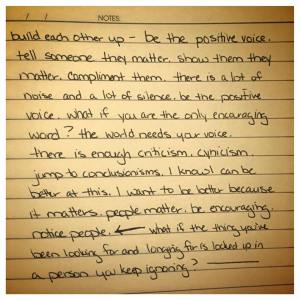 / / NOTES
build each other up - be the positive voice.
tell someone they matter. show them they
matter. compliment them. there is a lot of
noise and a lot of silence. be the positive
voice. what if you are the only encouraging
word? the world needs your voice.
there is enough criticism. cynicism.
jump to conclusionisms. I know I can be
better at this. I want to be better because
it matters. people matter. be encouraging.
notice people. ← what if the thing you've
been looking for and longing for is locked up in
a person you keep ignoring?